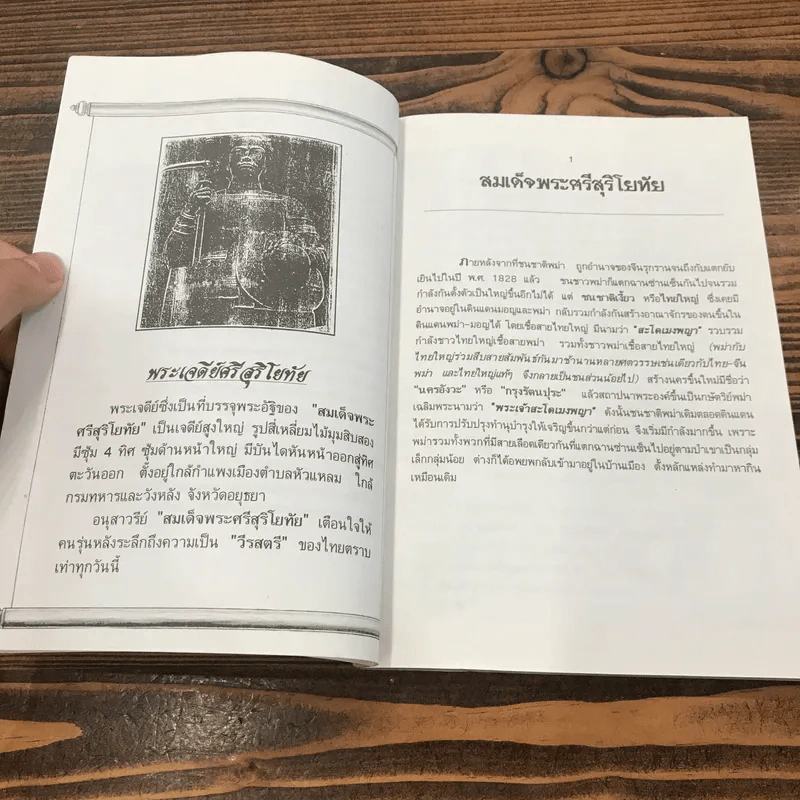 พระเจดีย์ศรีสุริโยทัย
พระเจดีย์ซึ่งเป็นที่บรรจุพระอัฐิของ "สมเด็จพระ
ศรีสุริโยทัย" เป็นเจดีย์สูงใหญ่ รูปสี่เหลี่ยมไม้มุมสิบสอง
มีซุ้ม 4 ทิศ ซุ้มด้านหน้าใหญ่ มีบันไดหันหน้าออกสู่ทิศ
ตะวันออก ตั้งอยู่ใกล้กำแพงเมืองตำบลหัวแหลม ใกล้
กรมทหารและวังหลัง จังหวัดอยุธยา
อนุสาวรีย์ "สมเด็จพระศรีสุริโยทัย" เตือนใจให้
คนรุ่นหลังระลึกถึงความเป็น "วีรสตรี" ของไทยตราบ
เท่าทุกวันนี้
1
สมเด็จพระศรีสุริโยทัย
ภายหลังจากที่ชนชาติพม่า ถูกอำนาจของจีนรุกรานจนถึงกับแตกยับ
เยินไปในปี พ.ศ. 1828 แล้ว ชนชาวพม่าก็แตกฉานซ่านเซ็นกันไปจนรวม
กำลังกันตั้งตัวเป็นใหญ่ขึ้นอีกไม่ได้ แต่ ชนชาติเงี้ยว หรือไทยใหญ่ ซึ่งเคยมี
อำนาจอยู่ในดินแดนมอญและพม่า กลับรวมกำลังกันสร้างอาณาจักรของตนขึ้นใน
ดินแดนพม่า-มอญได้ โดยเชื้อสายไทยใหญ่ มีนามว่า "สะโดเมงพญา" รวบรวม
กำลังชาวไทยใหญ่เชื้อสายพม่า รวมทั้งชาวพม่าเชื้อสายไทยใหญ่ (พม่ากับ
ไทยใหญ่ร่วมสืบสายสัมพันธ์กันมาช้านานหลายศตวรรษเช่นเดียวกับไทย-จีน
พม่า และไทยใหญ่แท้ๆ จึงกลายเป็นชนส่วนน้อยไป) สร้างนครขึ้นใหม่มีชื่อว่า
"นครอังวะ" หรือ "กรุงรัตนปุระ" แล้วสถาปนาพระองค์ขึ้นเป็นกษัตริย์พม่า
เฉลิมพระนามว่า "พระเจ้าสะโดเมงพญา" ดังนั้นชนชาติพม่าเดิมตลอดดินแดน
ได้รับการปรับปรุงทำนุบำรุงให้เจริญขึ้นกว่าแต่ก่อน จึงเริ่มมีกำลังมากขึ้น เพราะ
พม่ารวมทั้งพวกที่มีสายเลือดเดียวกันที่แตกฉานซ่านเซ็นไปอยู่ตามป่าเขาเป็นกลุ่ม
เล็กกลุ่มน้อย ต่างก็ได้อพยพกลับเข้ามาอยู่ในบ้านเมือง ตั้งหลักแหล่งทำมาหากิน
เหมือนเดิม